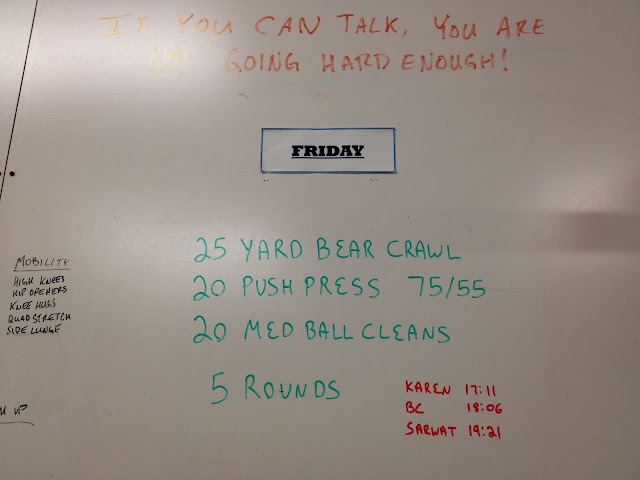 IF YOU CAN TALK, YOU ARE
NOT GOING HARD ENOUGH!
FRIDAY
25 YARD BEAR CRAWL
20 PUSH PRESS 75/55
20 MED BALL CLEANS
5 ROUNDS
MOBILITY
HIGH KNEES
HIP OPENERS
KNEE HUGS
QUAD STRETCH
SIDE LUNGE
UP
KAREN 17:11
BC 18:06
SARWAT 19:21